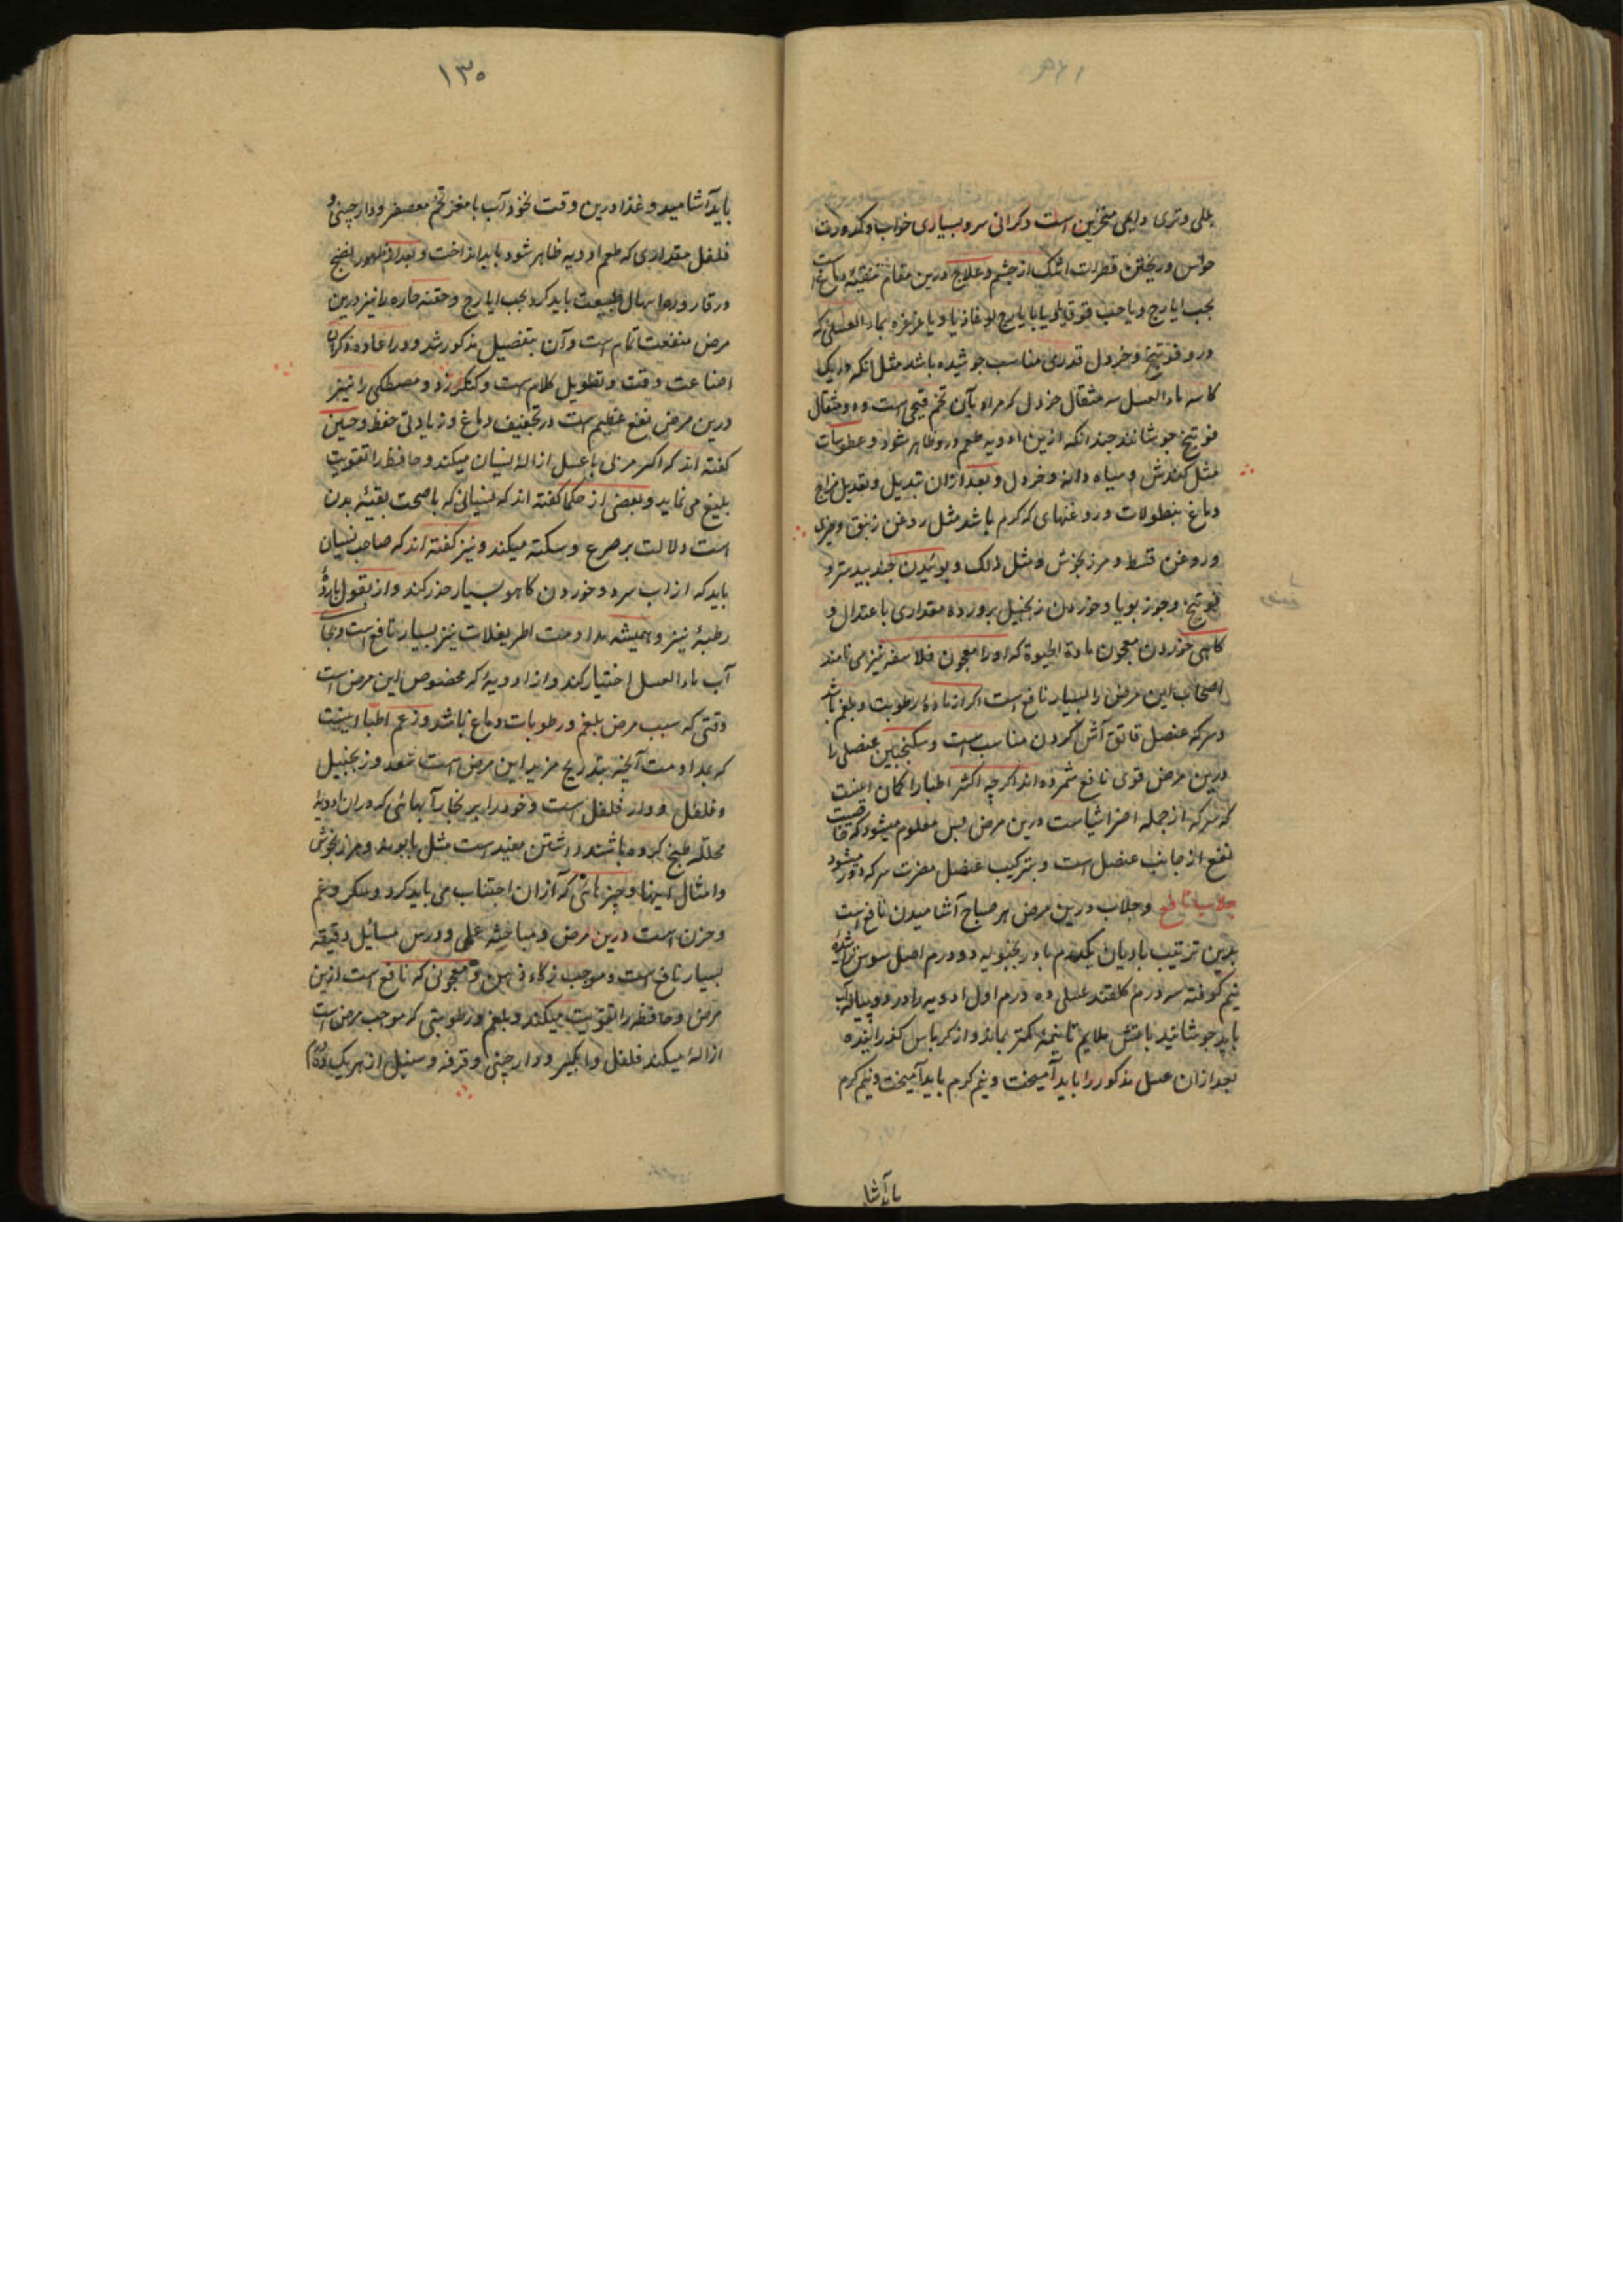 بللی و تری دایمی منخرین است و کرانی سر و بسیاری خواب و کدورت
حواس و ریختن قطرات اشک از چشم و علاج درین مقام تنقیه دماغ است
بحب ایارج و یا حب قوقایا و یا بایارج لوغاذیا و یا غرغره بماء العسلی که
درو فوتنج و خردل قدری مناسب جوشیده باشد مثل انکه در یک
کاسه ماء العسل سه مثقال خردل که مراد بآن تخم قیچی است و ده مثقال
فوتنج جوشانند چندانکه ازین ادویه طعم درو ظاهر شود و عطوسات
مثل کندش و سیاه دانه و خردل و بعد ازان تبدیل و تعدیل مزاج
دماغ بنطولات و روغنهای که کرم باشد مثل روغن زنبق و خیری
و روغن قسط و مرزنجوش و مثل ذلک و بوئیدن جندبیدستر و
فوتنج و جوز بویا و خوردن زنجبیل پرورده مقداری باعتدال و
کاهی خوردن معجون مادة الحیوة که او را معجون فلاسفه نیز می نامند
اصحاب این مرض را بسیار نافع است اکر از ماده رطوبت و بلغم باشد
و سرکه عنصل قاتق آش کردن مناسب است و سکنجبین عنصلی را
درین مرض قوی نافع شمرده اند اکرچه اکثر اطبا را کمان اینست
که سرکه از جمله اضر اشیاست درین مرض پس معلوم میشود که خاصیت
نفع از جانب عنصل است و بترکیب عنصل مضرت سرکه دور میشود
جلاب نافع و جلاب درین مرض هر صباح آشامیدن نافع است
بدین ترتیب بادیان یکدرم بادرنجبویه دو درم اصل سوس تراشیده
نیم کوفته سه درم کلقند عسلی ده درم اول ادویه را در دو پیاله آب
باید جوشانید باتش ملایم تا نیمه کمتر بماند و از کرباس کذرانیده
بعد ازان عسل مذکور را باید آمیخت و نیم کرم باید آمیخت و نیم کرم
باید آشا
۱۳۰
باید آشامید و غذا درین وقت نخود آب با مغز تخم معصفر و دارچینی و
فلفل مقداری که طعم ادویه ظاهر شود باید انداخت و بعد از ظهور نضج
در قاروره اسهال طبیعت باید کرد بحب ایارج و حقنه حاره را نیز درین
مرض منفعت تمام است و آن بتفصیل مذکور شد و در اعاده ذکر آن
اضاعت وقت و تطویل کلام است و کنکرزد و مصطکی را نیز
درین مرض نفع عظیم است در تجفیف دماغ و زیادتی حفظ و چنین
کفته اند که اکر مزلی با عسل ازاله نسیان میکند و حافظه را تقویت
بلیغ می نماید و بعضی از حکما کفته اند که نسیانی که با صحت بقیه بدن
است دلالت بر صرع و سکته میکند و نیز کفته اند که صاحب نسیان
باید که از آب سرد و خوردن کاهو بسیار حذر کند و از بقول بارده
رطبه نیز و همیشه مداومت اطریفلات نیز بسیار نافع است و بجای
آب ماء العسل اختیار کند و از ادویه که مخصوص این مرض است
وقتی که سبب مرض بلغم و رطوبات دماغ باشد و زعم اطبا اینست
که بمداومت آنچه بتدریج مزیل این مرض است سعد و زنجبیل
و فلفل و دار فلفل است و خود را بر بخار آبهائی که دران ادویه
محلله طبخ کرده باشند داشتن مفید است مثل بابونه و مرزنجوش
و امثال اینها و چیزهائی که ازان اجتناب می باید کرد و فکر و غم
و حزن است درین مرض و مباحثه علمی و درس مسائل دقیقه
بسیار نافع است و موجب ذکاء ذهن و معجونی که نافع است ازین
مرض و حافظه را تقویت میکند و بلغم و رطوبتی که موجب مرض است
ازاله میکند فلفل و دارچینی و قرفه و سنبل از هر یک ده درم